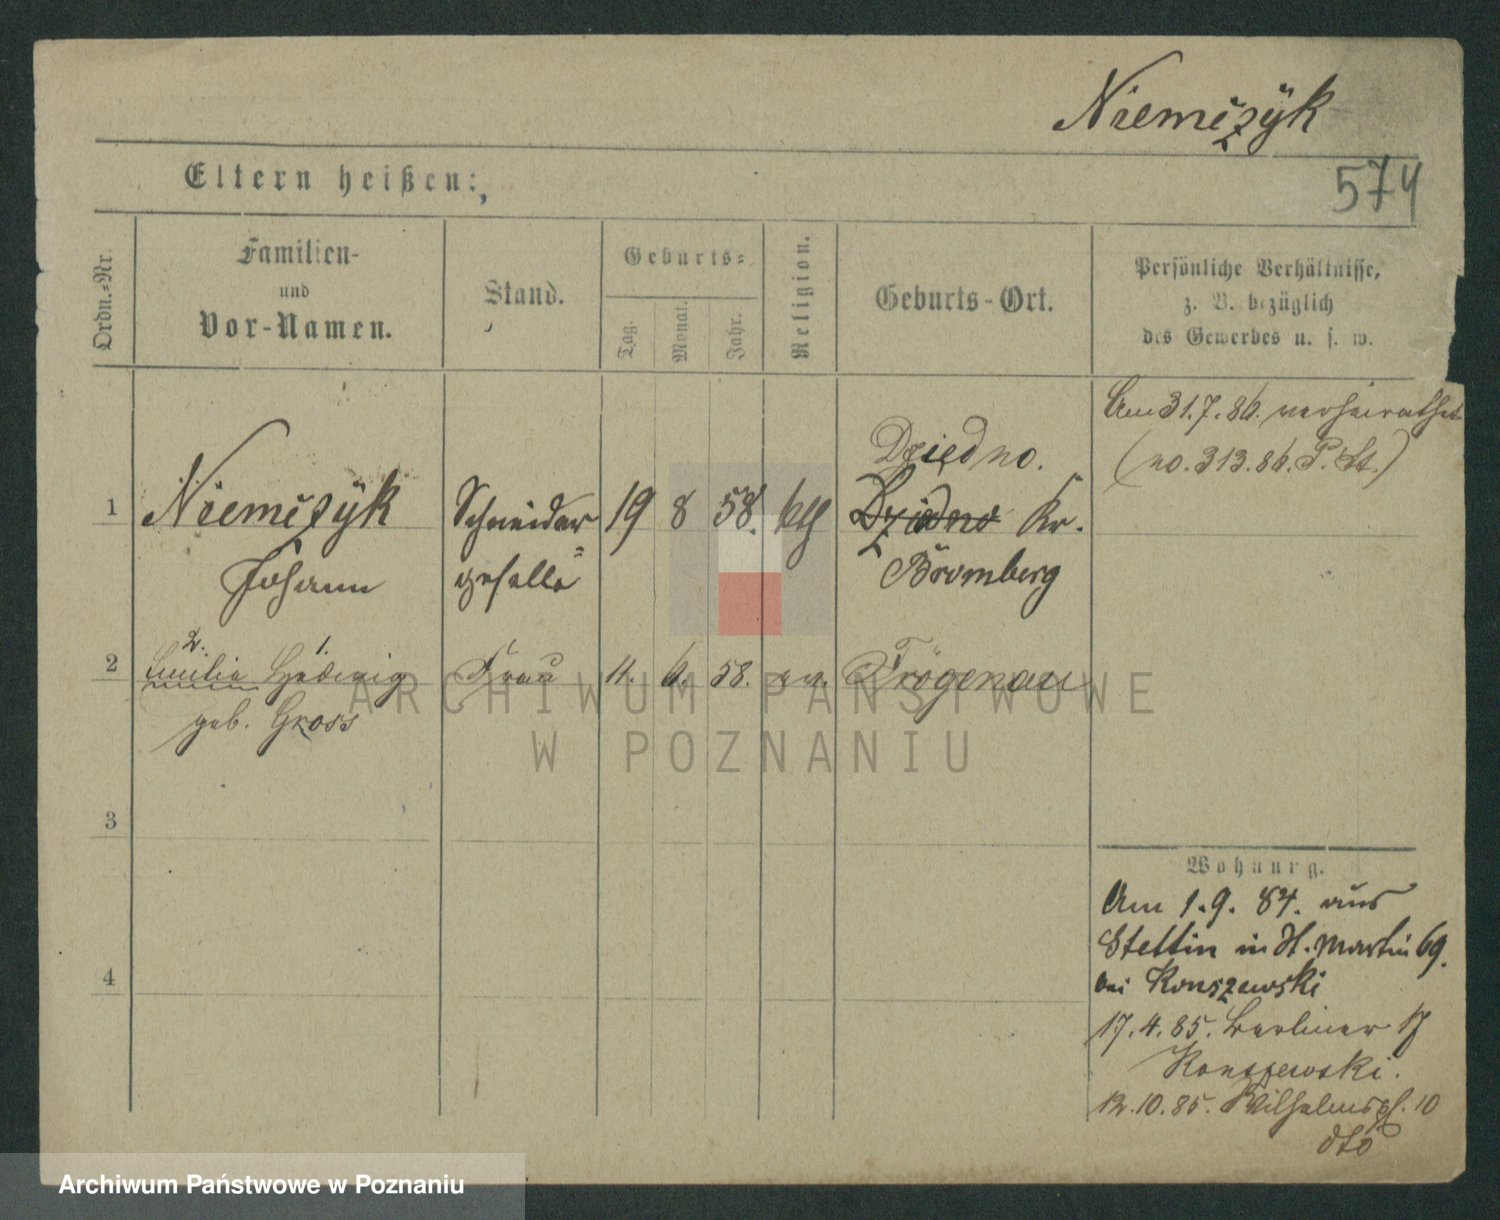 Niemczÿk
574
Eltern heißen:
Ordn.-Nr.
Familien-
und
Vor-Namen.
Stand.
Geburts-
Tag.
Monat.
Jahr.
Religion.
Geburts-Ort.
Persönliche Verhältnisse,
z. B. bezüglich
des Gewerbes u. s. w.
Am 31.7.86. verheirathet
(no. 313.86. P. St.)
Dziedno.
1 Niemczÿk Schneider 19 8 58. kth Dziedno Kr.
Johann geselle Bromberg
2.  1.
2 Emilie Hedwig Frau 11. 6. 58. ev. Frögenau
geb. Gross
3
4
Wohnung.
Am 1.9.84. aus
Stettin in St. Martin 69.
bei Konszewski
17.4.85. Berliner 17
Konszewski.
12.10.85. Wilhelmspl. 10
dto
ARCHIWUM PAŃSTWOWE
W POZNANIU
Archiwum Państwowe w Poznaniu